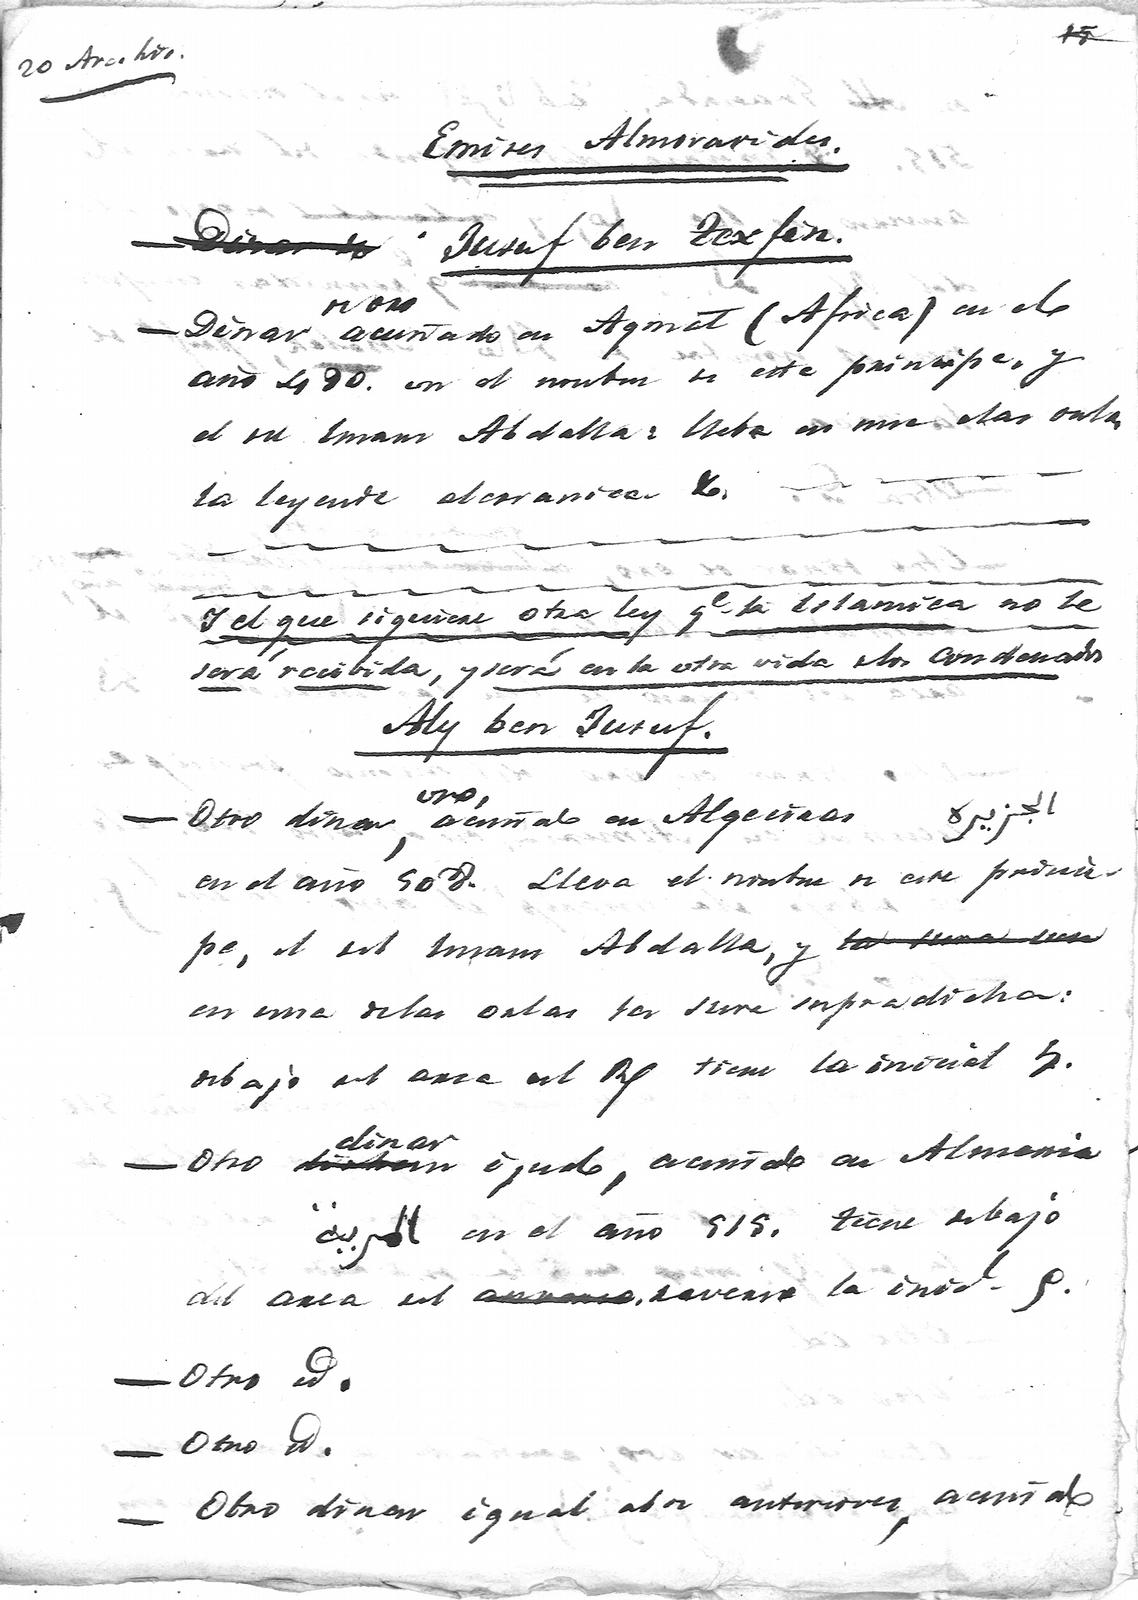 20 Archiv.
15
Emires Almoravides.
Dinar de Jusuf ben Texfin.
de oro
— Dinar acuñado en Agmat (Africa) en el
año 490. en el nombre de este principe, y
el del Imam Abdalla: lleba en una de las orlas
la leyenda alcoranica &.
Y el que siguiese otra ley qe. la Islamica no le
será recibida, y será en la otra vida de los condenados
Aly ben Jusuf.
oro,
— Otro dinar, acuñado en Algeciras الجزيرة
en el año 508. Lleva el nombre de este princi-
pe, el del Imam Abdalla, y la sura
en una de las orlas la sura supradicha:
debajo del area del Rf tiene la inicial
dinar
— Otro dirhem igual, acuñado en Almeria
المرية en el año 515. tiene debajo
del area del anverso, reverso la inicl.
— Otro id.
— Otro id.
— Otro dinar igual a los anteriores, acuñado